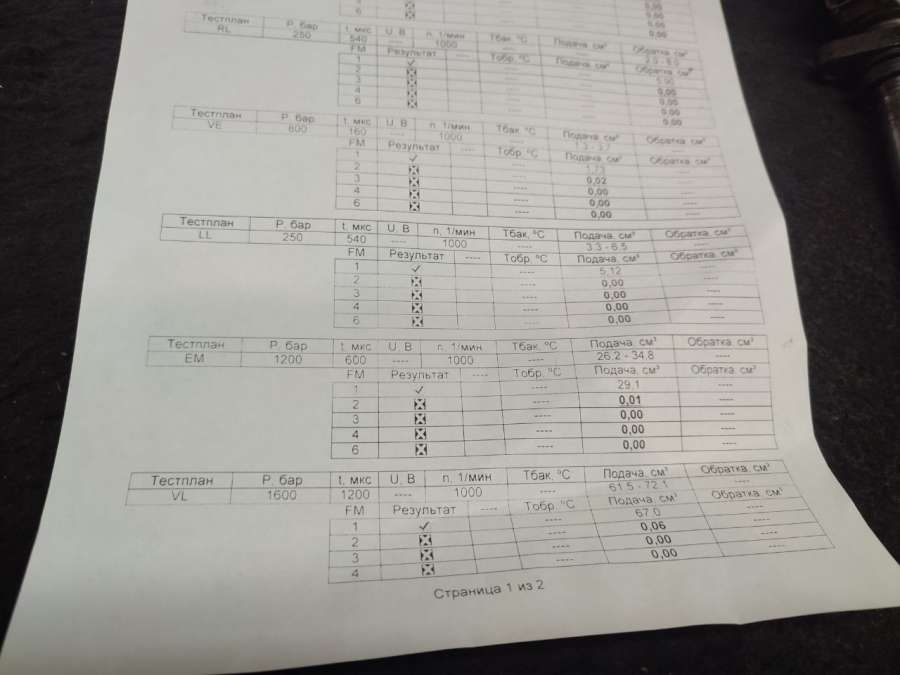 4
6 0,00
0,00
0,00
Тестплан Р. бар t, мкс U, В n, 1/мин Тбак, °С Подача, см³ Обратка, см³
RL 250 540 ---- 1000 ---- ---- 2.0 - 8.0
FM Результат ---- Тобр, °С Подача, см³ Обратка, см³
1 ✓ ---- ----
2 ---- ---- 0,00
3 ---- ---- 0,00
4 ---- ---- 0,00
6 ---- ---- 0,00
Тестплан Р. бар t, мкс U, В n, 1/мин Тбак, °С Подача, см³ Обратка, см³
VE 800 160 ---- 1000 ---- ----
FM Результат ---- Тобр, °С Подача, см³ Обратка, см³
1 ✓ ---- 1,73 ----
2 ---- 0,02 ----
3 ---- 0,00 ----
4 ---- 0,00 ----
6 ---- 0,00 ----
Тестплан Р. бар t, мкс U, В n, 1/мин Тбак, °С Подача, см³ Обратка, см³
LL 250 540 ---- 1000 ---- 3.3 - 6.5 ----
FM Результат ---- Тобр, °С Подача, см³ Обратка, см³
1 ✓ ---- 5,12 ----
2 ---- 0,00 ----
3 ---- 0,00 ----
4 ---- 0,00 ----
6 ---- 0,00 ----
Тестплан Р. бар t, мкс U, В n, 1/мин Тбак, °С Подача, см³ Обратка, см³
EM 1200 600 ---- 1000 ---- 26.2 - 34.8 ----
FM Результат ---- Тобр, °С Подача, см³ Обратка, см³
1 ✓ ---- 29,1 ----
2 ---- 0,01 ----
3 ---- 0,00 ----
4 ---- 0,00 ----
6 ---- 0,00 ----
Тестплан Р. бар t, мкс U, В n, 1/мин Тбак, °С Подача, см³ Обратка, см³
VL 1600 1200 ---- 1000 ---- 61.5 - 72.1 ----
FM Результат ---- Тобр, °С Подача, см³ Обратка, см³
1 ✓ ---- 67,0 ----
2 ---- 0,06 ----
3 ---- 0,00 ----
4 ---- 0,00 ----
Страница 1 из 2